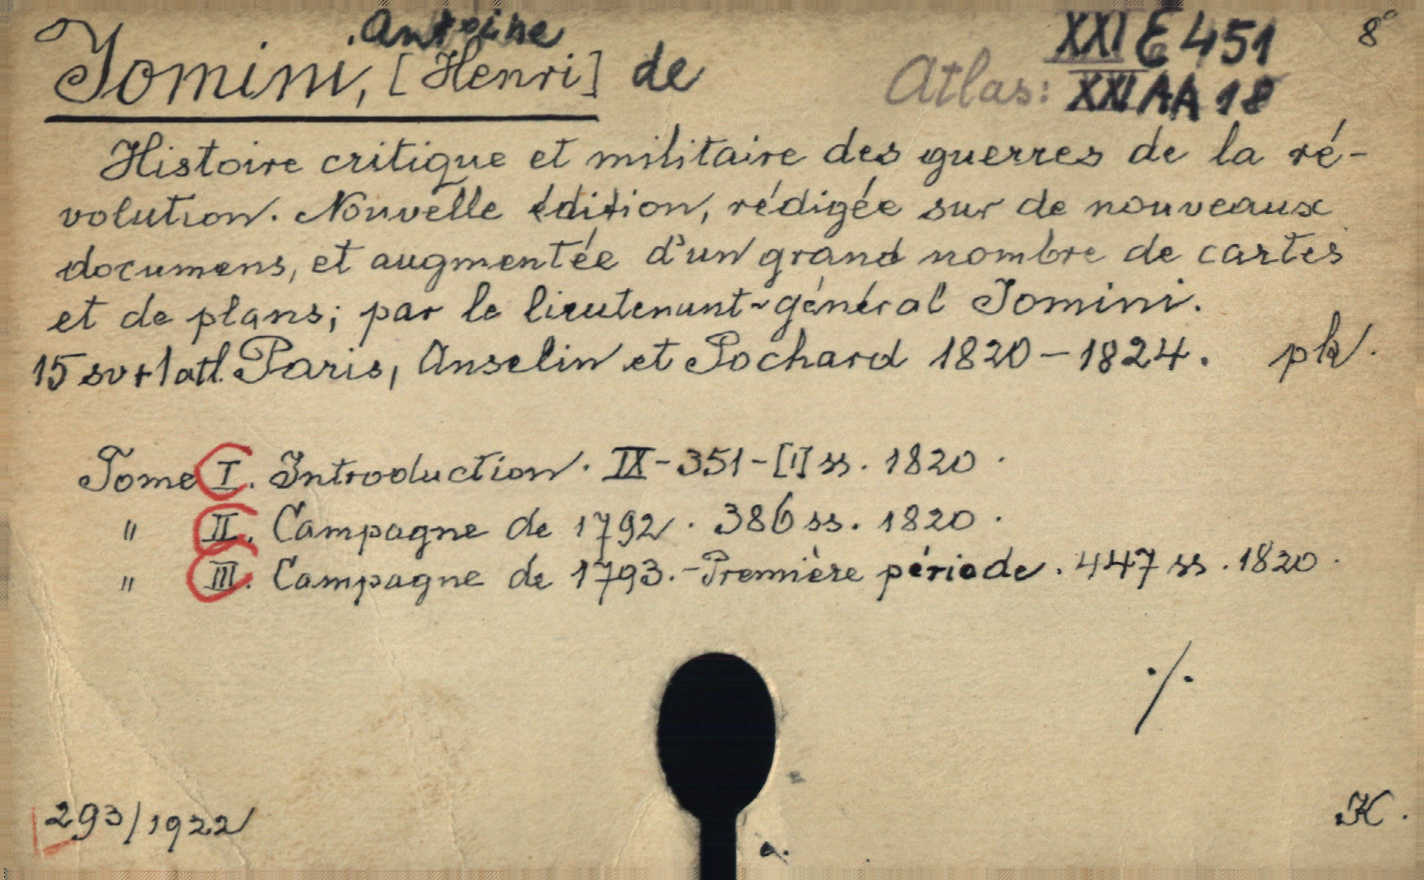 Antoine
Jomini, [Henri] de
XXI E 451
8°
Atlas: XXI AA 18
Histoire critique et militaire des guerres de la ré-
volution. Nouvelle édition, rédigée sur de nouveaux
documens, et augmentée d'un grand nombre de cartes
et de plans; par le lieutenant-général Jomini.
15 sv+1 atl. Paris, Anselin et Pochard 1820-1824. pk.
Tome I. Introduction. IX-351-[1] ss. 1820.
" II. Campagne de 1792. 386 ss. 1820.
" III. Campagne de 1793.-Première période. 447 ss. 1820.
./.
293/1922
K.